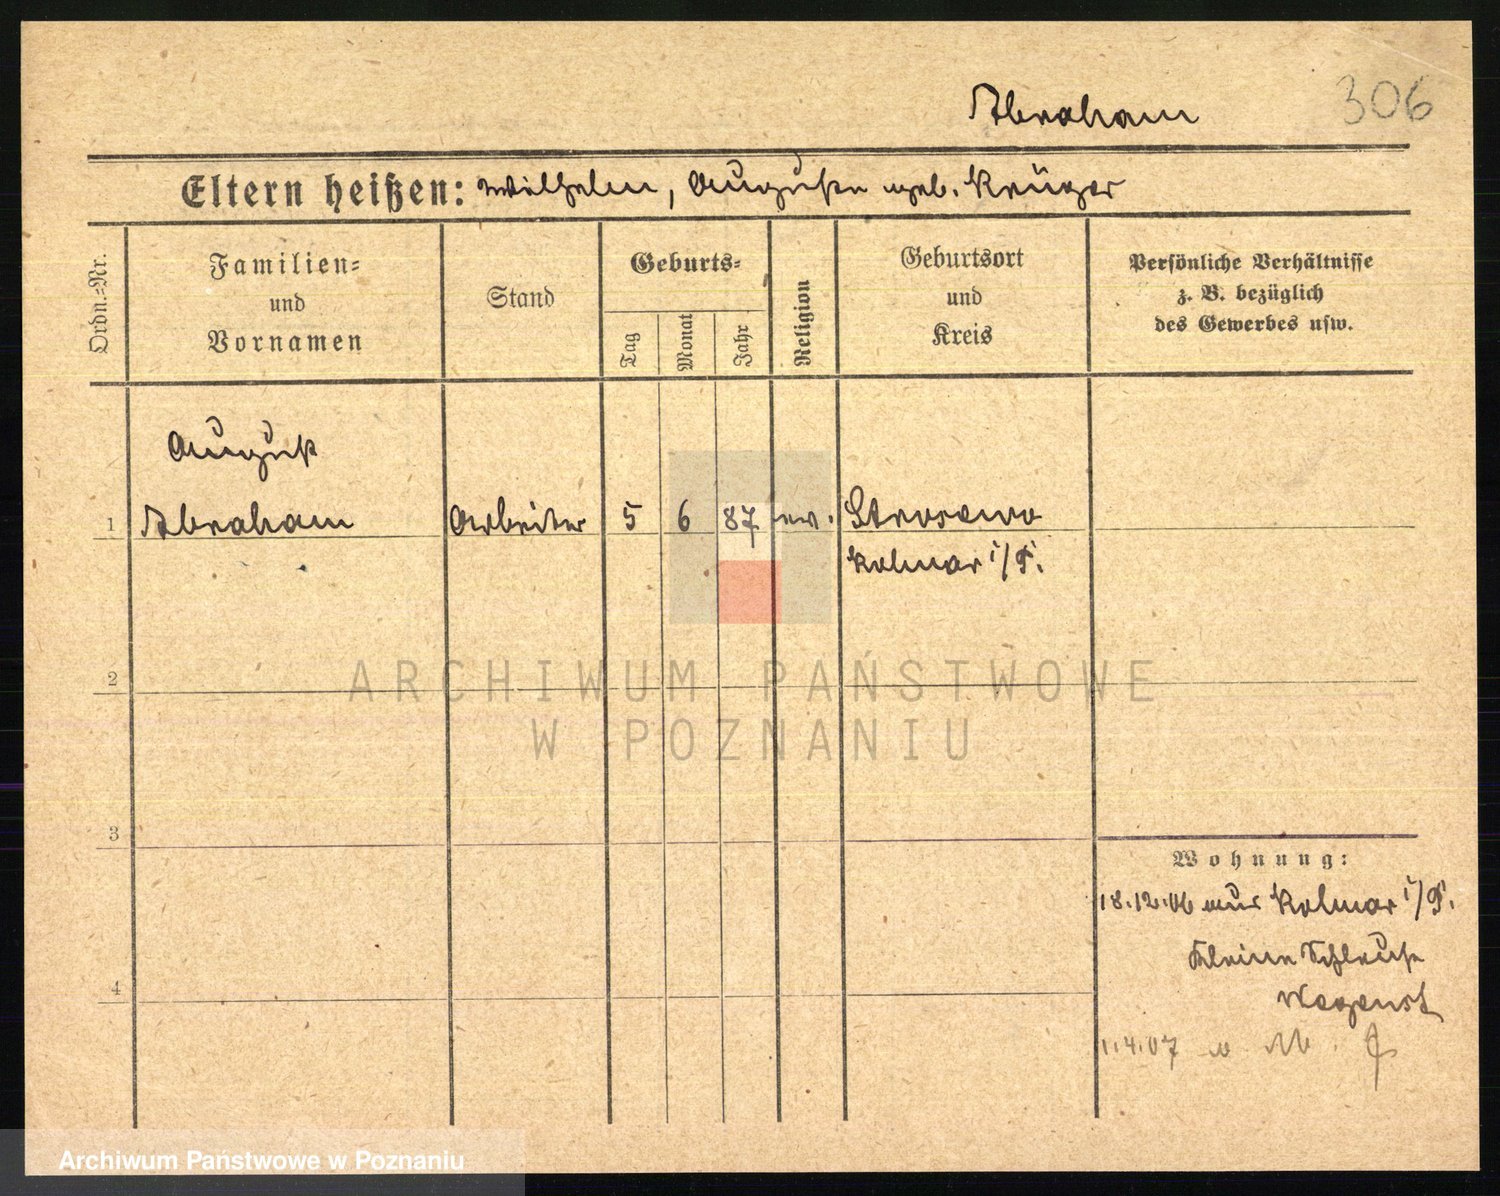 Abraham 306
Eltern heißen: Wilhelm, Auguste geb. Krüger
Ordn.=Nr.
Familien=
und
Vornamen
Stand
Geburts=
Tag
Monat
Jahr
Religion
Geburtsort
und
Kreis
Persönliche Verhältnisse
z. B. bezüglich
des Gewerbes usw.
August
1 Abraham Arbeiter 5 6 87 ev. Strosewo
Kolmar i/P.
2
ARCHIWUM PAŃSTWOWE
W POZNANIU
3
Wohnung:
18.12.06 aus Kolmar i/P.
Kleine
4
1.4.07
Archiwum Państwowe w Poznaniu